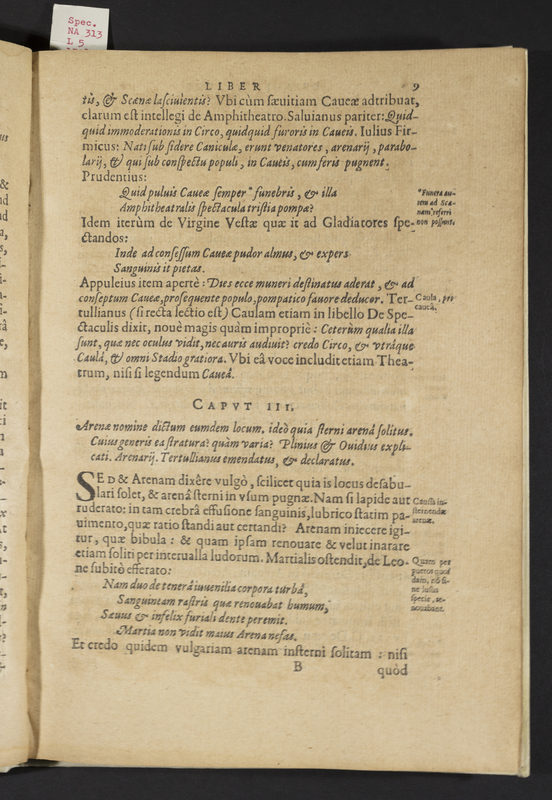 Spec.
NA 313
L 5
LIBER 9
tis, & Scænæ lasciuientis? Vbi cùm sæuitiam Caueæ adtribuat,
clarum est intellegi de Amphitheatro. Saluianus pariter: Quid-
quid immoderationis in Circo, quidquid furoris in Caueis. Iulius Fir-
micus: Nati sub sidere Caniculæ, erunt venatores, arenarij, parabo-
larij, & qui sub conspectu populi, in Caueis, cum feris pugnent.
Prudentius:
Quid puluis Caueæ semper * funebris, & illa
Amphitheatralis spectacula tristia pompæ?
* Funera au-
tem ad Scæ-
nam referri
non possunt.
Idem iterùm de Virgine Vestæ quæ it ad Gladiatores spe-
ctandos:
Inde ad consessum Caueæ pudor almus, & expers
Sanguinis it pietas.
Appuleius item apertè: Dies ecce muneri destinatus aderat, & ad
conseptum Caueæ, prosequente populo, pompatico fauore deducor. Ter-
tullianus (si recta lectio est) Caulam etiam in libello De Spe-
ctaculis dixit, nouè magis quàm impropriè: Ceterùm qualia illa
sunt, quæ nec oculus vidit, nec auris audiuit? credo Circo, & vtráque
Caulâ, & omni Stadio gratiora. Vbi eâ voce includit etiam Thea-
trum, nisi si legendum Caueâ.
Caula, pro
caueâ.
CAPVT III.
Arenæ nomine dictum eumdem locum. ideò quia sterni arenâ solitus.
Cuius generis ea stratura? quàm varia? Plinius & Ouidius expli-
cati. Arenarij. Tertullianus emendatus, & declaratus.
SED & Arenam dixêre vulgò, scilicet quia is locus desabu-
lari solet, & arenâ sterni in vsum pugnæ. Nam si lapide aut
ruderato: in tam crebrâ effusione sanguinis, lubrico statim pa-
uimento, quæ ratio standi aut certandi? Arenam iniecere igi-
tur, quæ bibula: & quam ipsam renouare & velut inarare
etiam soliti per interualla ludorum. Martialis ostendit, de Leo-
ne subitò efferato:
Caussa in-
sternendæ
arenæ.
Quam per
pueros quos-
dam,
ne lusus
specie, re-
nouabant.
Nam duo de tenerâ iuuenilia corpora turbâ,
Sanguineam rastris quæ renouabat humum,
Sæuus & infelix furiali dente peremit.
Martia non vidit maius Arena nefas.
Et credo quidem vulgariam arenam insterni solitam: nisi
B quòd